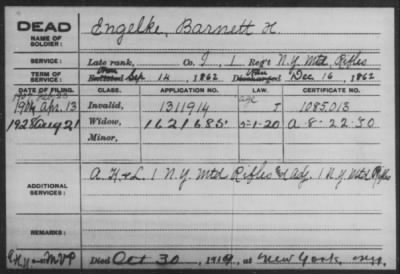 DEAD
NAME OF SOLDIER:
Engelke, Barnett H.
SERVICE: Late rank, Co. I, 1 Reg't N.Y. Mtd. Rifles
TERM OF SERVICE: Enlisted Sep 14, 1862, Discharged Dec. 16, 1862
DATE OF FILING. CLASS. APPLICATION NO. LAW. CERTIFICATE NO.
1904 Apr. 13 Invalid, 1311914 age 1085013
Aug 21 Widow, 1621685 5-1-20 A-8-22-30
Minor,
ADDITIONAL SERVICES:
A, H & L, 1 N.Y. Mtd Rifles & Adj. 1 N.Y. Mtd Rifles
REMARKS:
Died Oct 30, 1919, at New York, N.Y.